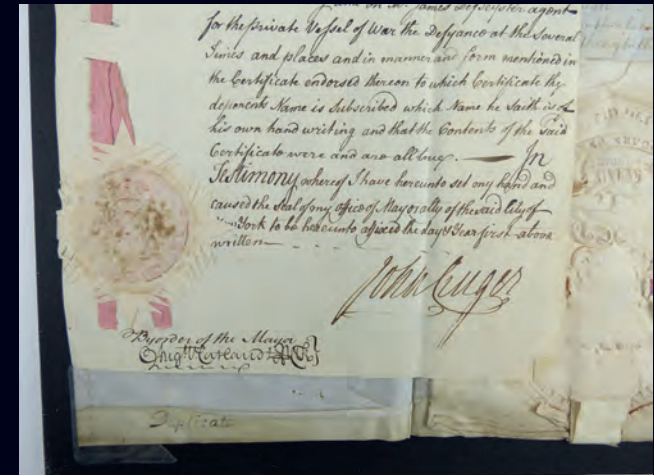 on Mr. James Depeyster agent
for the Private Vessel of War the Defyance at the Several
Times and places and in manner and form mentioned in
the Certificate endorsed thereon to which Certificate the
deponents Name is Subscribed which Name he Saith is of
his own hand writing and that the Contents of the said
Certificate were and are all true. — In
Testimony whereof I have hereunto set my hand and
caused the Seal of my office of Mayoralty of the said City of
New York to be hereunto affixed the day & Year first above
written
John Cuger
By order of the Mayor
Duplicate